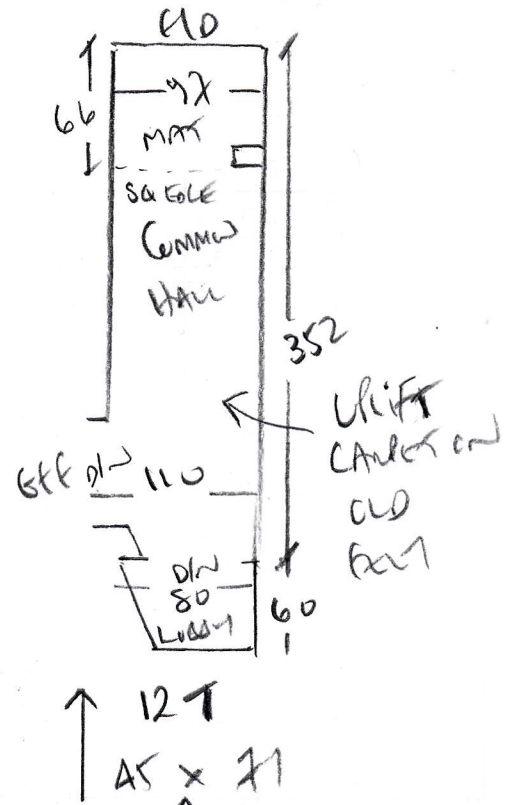 CLD
97
66
MAT
SQ EDGE
COMMON
HALL
352
UPLIFT
CARPET ON
OLD
EFF D/N 110
D/N
80
60
LOBBY
12T
45 x 71